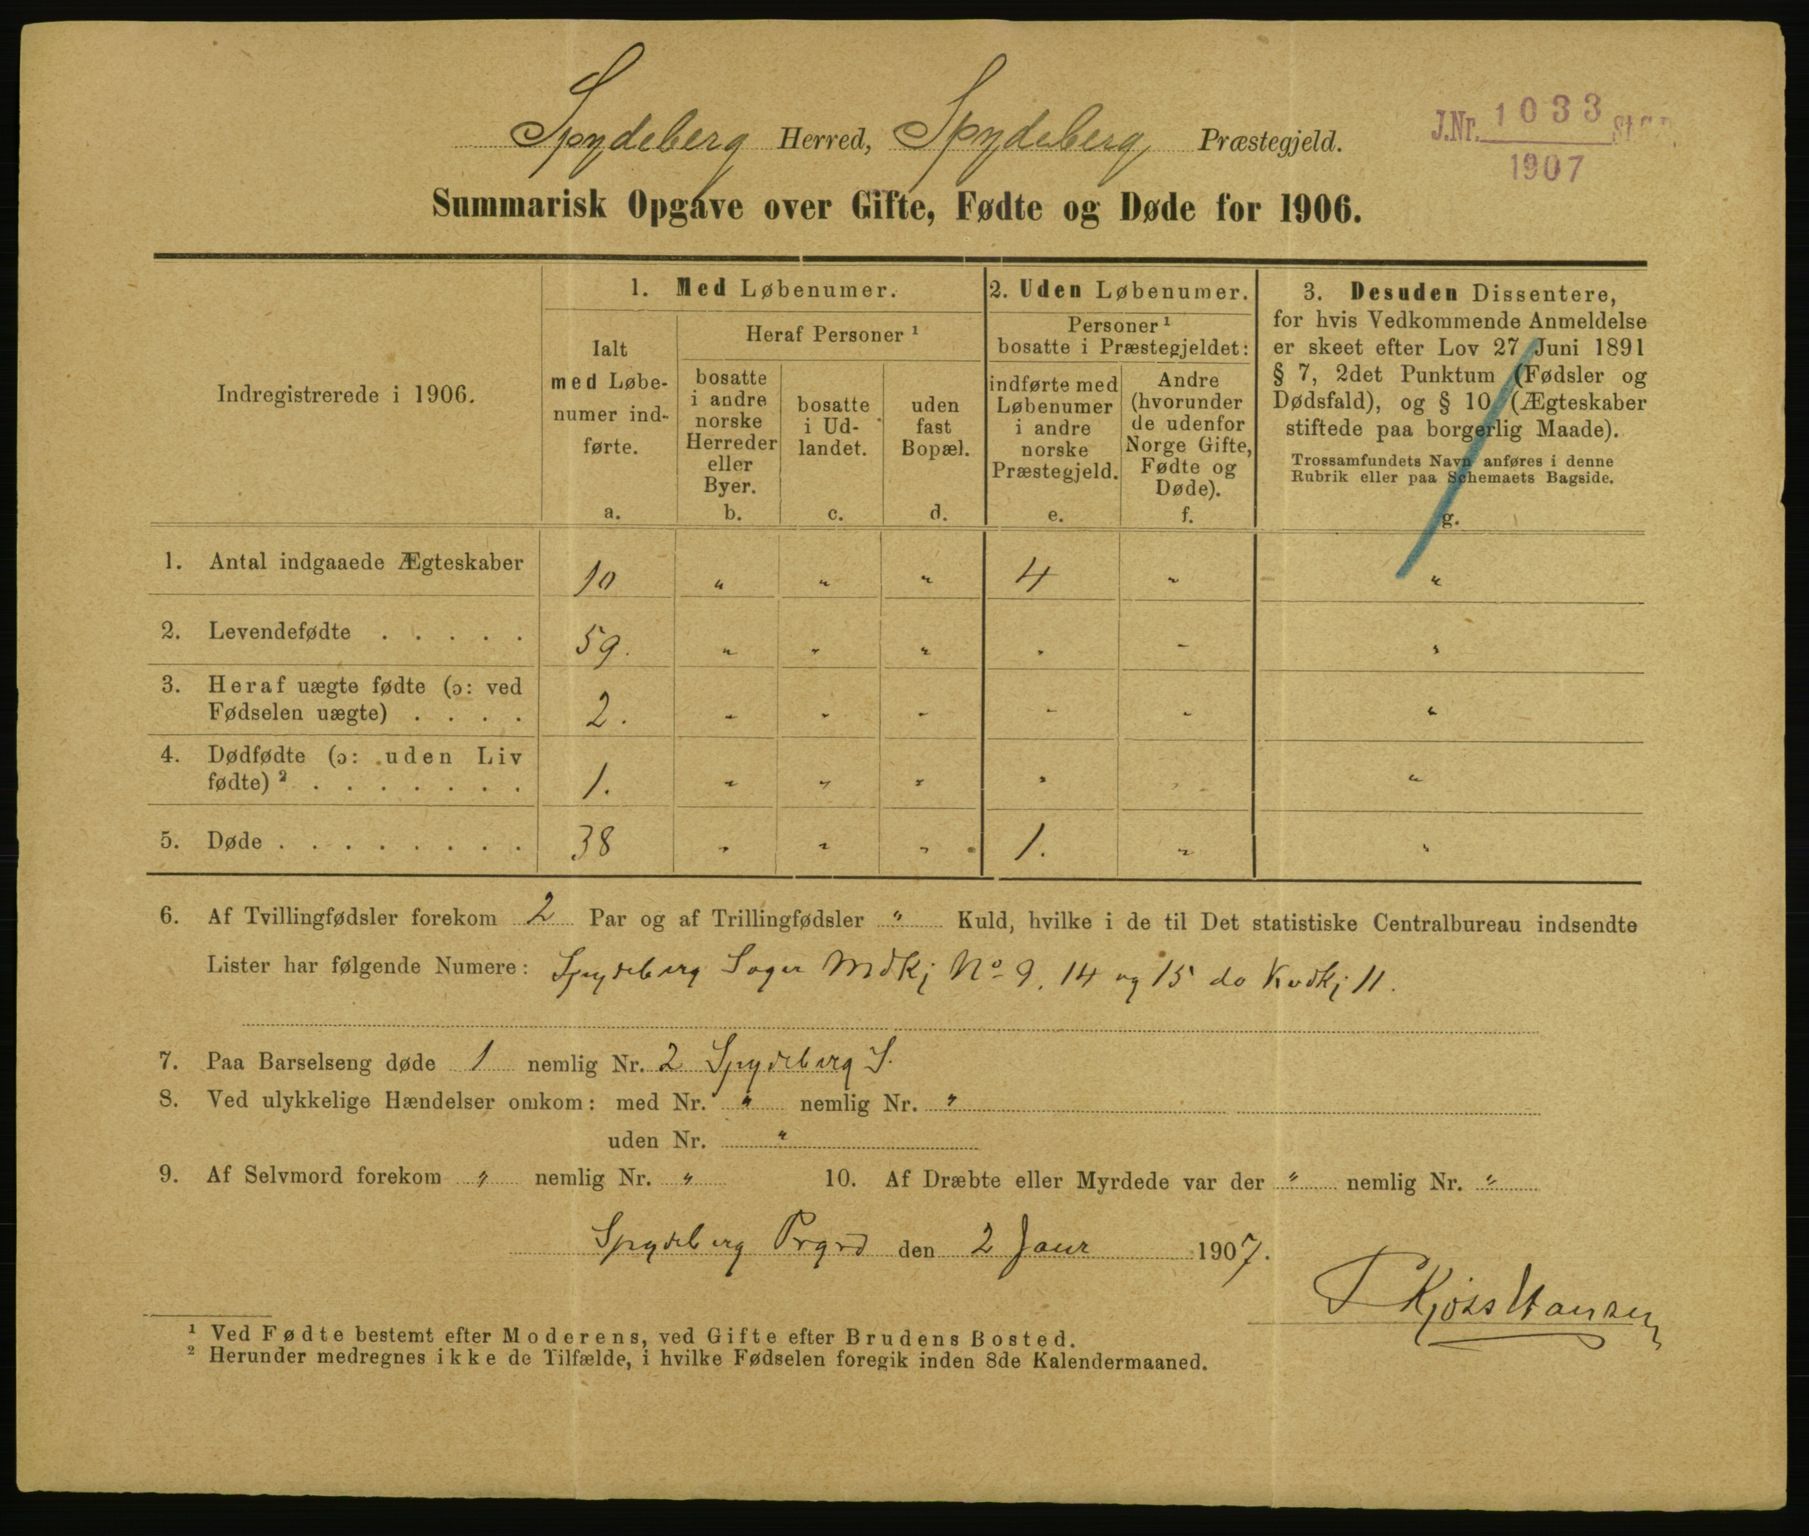 Spydeberg Herred, Spydeberg Præstegjeld.
J.Nr. 1033
1907
Summarisk Opgave over Gifte, Fødte og Døde for 1906.
Indregistrerede i 1906.
1. Med Løbenumer.
2. Uden Løbenumer.
3. Desuden Dissentere,
for hvis Vedkommende Anmeldelse
er skeet efter Lov 27 Juni 1891
§ 7, 2det Punktum (Fødsler og
Dødsfald), og § 10 (Ægteskaber
stiftede paa borgerlig Maade).
Trossamfundets Navn anføres i denne
Rubrik eller paa Schemaets Bagside.
g.
Ialt
med Løbe-
numer ind-
førte.
a.
Heraf Personer ¹
bosatte
i andre
norske
Herreder
eller
Byer.
b.
bosatte
i Ud-
landet.
c.
uden
fast
Bopæl.
d.
Personer ¹
bosatte i Præstegjeldet:
indførte med
Løbenumer
i andre
norske
Præstegjeld.
e.
Andre
(hvorunder
de udenfor
Norge Gifte,
Fødte og
Døde).
f.
1. Antal indgaaede Ægteskaber 10 " " " 4 " "
2. Levendefødte . . . . . 59. " " " " " "
3. Heraf uægte fødte (ɔ: ved
Fødselen uægte) . . . . 2. " " " " " "
4. Dødfødte (ɔ: uden Liv
fødte) ² . . . . . . . 1. " " " " " "
5. Døde . . . . . . . . 38 " " " 1. " "
6. Af Tvillingfødsler forekom 2 Par og af Trillingfødsler " Kuld, hvilke i de til Det statistiske Centralbureau indsendte
Lister har følgende Numere: Spydeberg Sogn Mdkj No 9, 14 og 15 do Kvdkj 11.
7. Paa Barselseng døde 1 nemlig Nr. 2 Spydeberg S.
8. Ved ulykkelige Hændelser omkom: med Nr. " nemlig Nr. "
uden Nr. "
9. Af Selvmord forekom " nemlig Nr. " 10. Af Dræbte eller Myrdede var der " nemlig Nr. "
Spydeberg Prgrd den 2 Janr 1907.
T Kjøss Hansen
¹ Ved Fødte bestemt efter Moderens, ved Gifte efter Brudens Bosted.
² Herunder medregnes ikke de Tilfælde, i hvilke Fødselen foregik inden 8de Kalendermaaned.